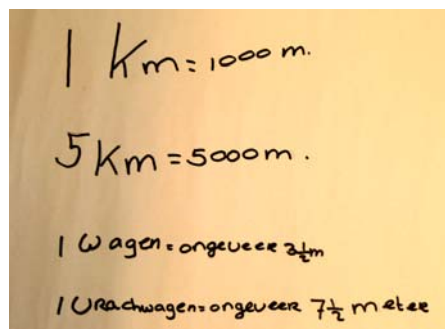 1 Km = 1000 m.
5 Km = 5000 m.
1 wagen = ongeveer 3½ m
1 Vrachwagen = ongeveer 7½ meter